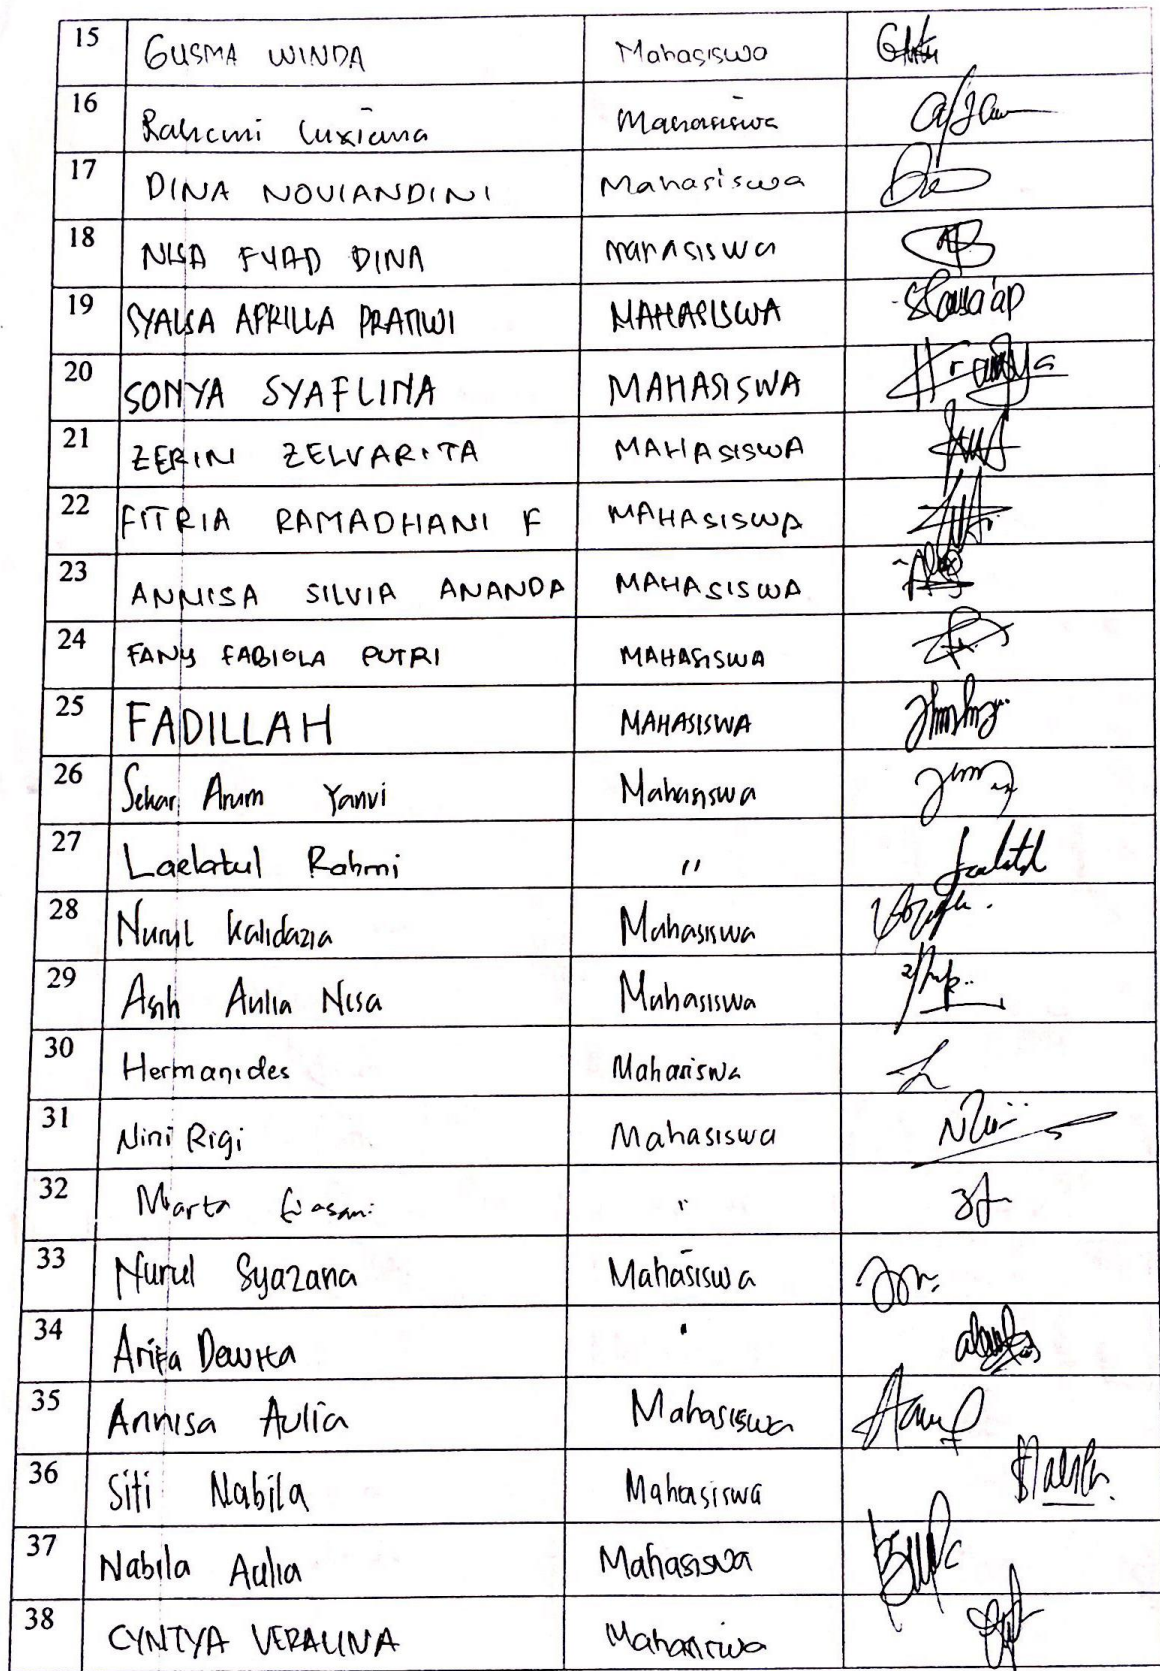 15 GUSMA WINDA Mahasiswa
16 Rahmi Mahasiswa
17 DINA NOVIANDINI Mahasiswa
18 NISA FUAD DINA mahasiswa
19 SYALSA APRILLA PRATIWI MAHASISWA
20 SONYA SYAFLINA MAHASISWA
21 ZERINI ZELVARITA MAHASISWA
22 FITRIA RAMADHANI F MAHASISWA
23 ANNISA SILVIA ANANDA MAHASISWA
24 FANY FABIOLA PUTRI MAHASISWA
25 FADILLAH MAHASISWA
26 Sekar Arum Yanvi Mahasiswa
27 Laelatul Rahmi "
28 Nurul Kalidazia Mahasiswa
29 Asih Aulia Nisa Mahasiswa
30 Hermanides Mahasiswa
31 Nini Rigi Mahasiswa
32 Marta "
33 Nurul Syazana Mahasiswa
34 Arifa Dewita "
35 Annisa Aulia Mahasiswa
36 Siti Nabila Mahasiswa
37 Nabila Aulia Mahasiswa
38 CYNTYA VERALINA Mahasiswa